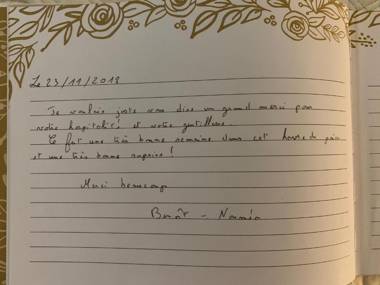 Le 23/11/2018
Je voulais juste vous dire un grand merci pour
votre hospitalité et votre gentillesse.
Ce fut une très bonne semaine dans cet havre de paix
et une très bonne surprise !
Merci beaucoup
Benoît -